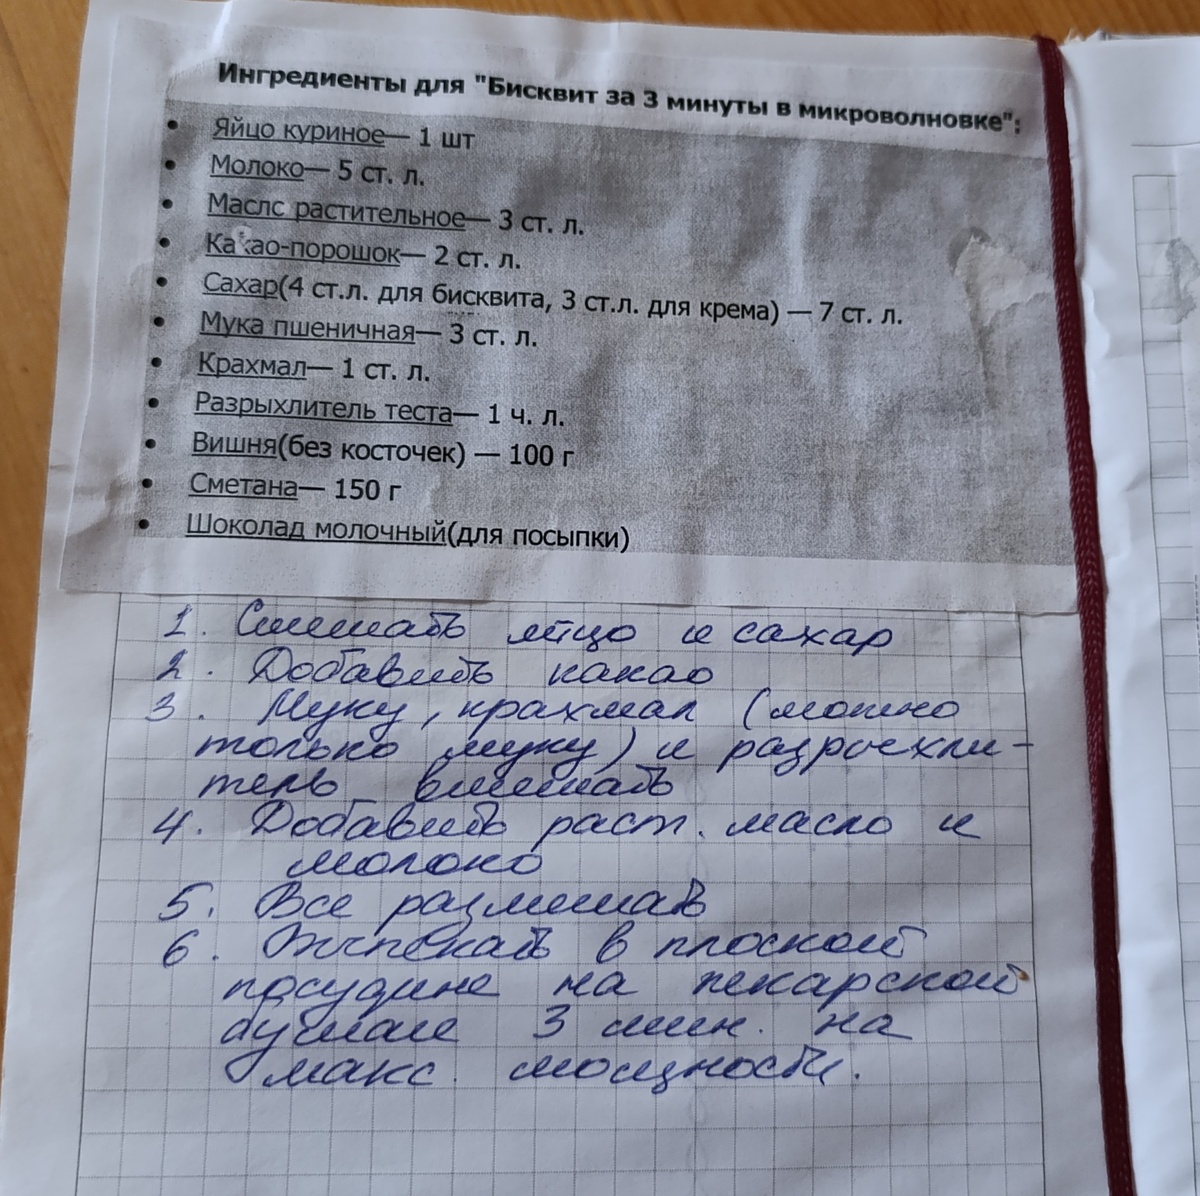 Ингредиенты для "Бисквит за 3 минуты в микроволновке":
• Яйцо куриное— 1 шт
• Молоко— 5 ст. л.
• Маслс растительное— 3 ст. л.
• Какао-порошок— 2 ст. л.
• Сахар(4 ст.л. для бисквита, 3 ст.л. для крема) — 7 ст. л.
• Мука пшеничная— 3 ст. л.
• Крахмал— 1 ст. л.
• Разрыхлитель теста— 1 ч. л.
• Вишня(без косточек) — 100 г
• Сметана— 150 г
• Шоколад молочный(для посыпки)
1. Смешать яйцо и сахар
2. Добавить какао
3. Муку, крахмал (можно
только муку) и разрыхли-
тель вмешать
4. Добавить раст. масло и
молоко
5. Все размешать
6. Выпекать в плоской
посудине на пекарской
бумаге 3 мин. на
макс. мощности.